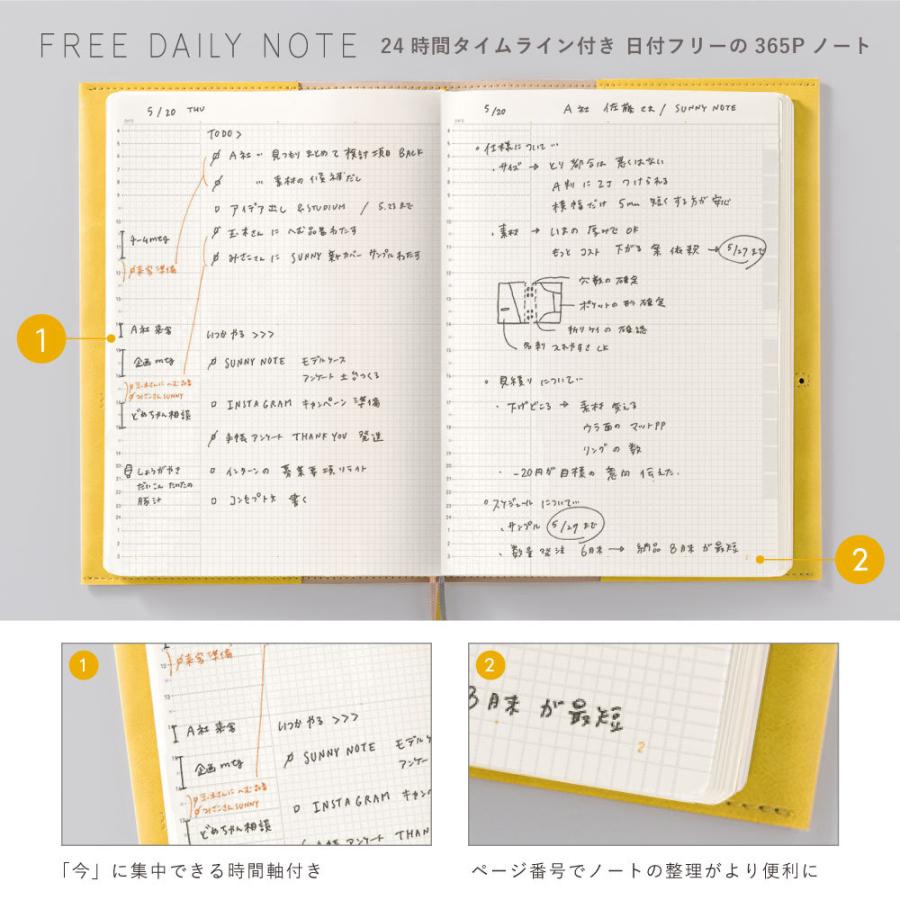 FREE DAILY NOTE 24時間タイムライン付き 日付フリーの365Pノート
5/20 THU
TODO >
A社 … 見つもりまとめて 検討項目 BACK
… 素材の候補だし
アイデア出し &STUDIUM / 5.23まで
玉木さんに へむ品番わたす
みさこさんに SUNNY 新カバー サンプルわたす
チームmtg
来客準備
A社 来客
いつかやる >>>
企画mtg
SUNNY NOTE モデルケース
アンケート 土台つくる
玉木さんに へむ品番
みさこさんSUNNY
どめちゃん相談
INSTAGRAM キャンペーン 準備
手帳アンケート THANK YOU 発送
しょうがやき
だいこん たいたの
豚汁
インターンの 募集要項リライト
コンセプト文 書く
5/20 A社 佐藤さん / SUNNY NOTE
仕様について…
・サイズ → とり都合は悪くはない
A判に2コ つけられる
横幅だけ 5mm 短くする方が安心
・素材 → いまの厚みで OK
もっと コスト 下がる 案 依頼 → 5/27まで
穴数の確定
ポケットの形 確定
折りケイの確認
名刺 入れやすさ CK
見積りについて…
・下げどころ → 素材 変える
ウラ面の マットPP
リングの数
・-20円が目標の意向 伝えた.
スケジュールについて…
・サンプル 5/29まで
・数量発注 6月末 → 納品 8月末が最短
2
1
2
1
来客準備
A社 来客
いつかやる >>>
企画mtg
SUNNY NOTE モデルケ
アンケー
玉木さんに へむ品番
みさこさんSUNNY
INSTAGRAM キャン
どめちゃん相談
アンケート THAN
2
8月末が最短
2
「今」に集中できる時間軸付き
ページ番号でノートの整理がより便利に